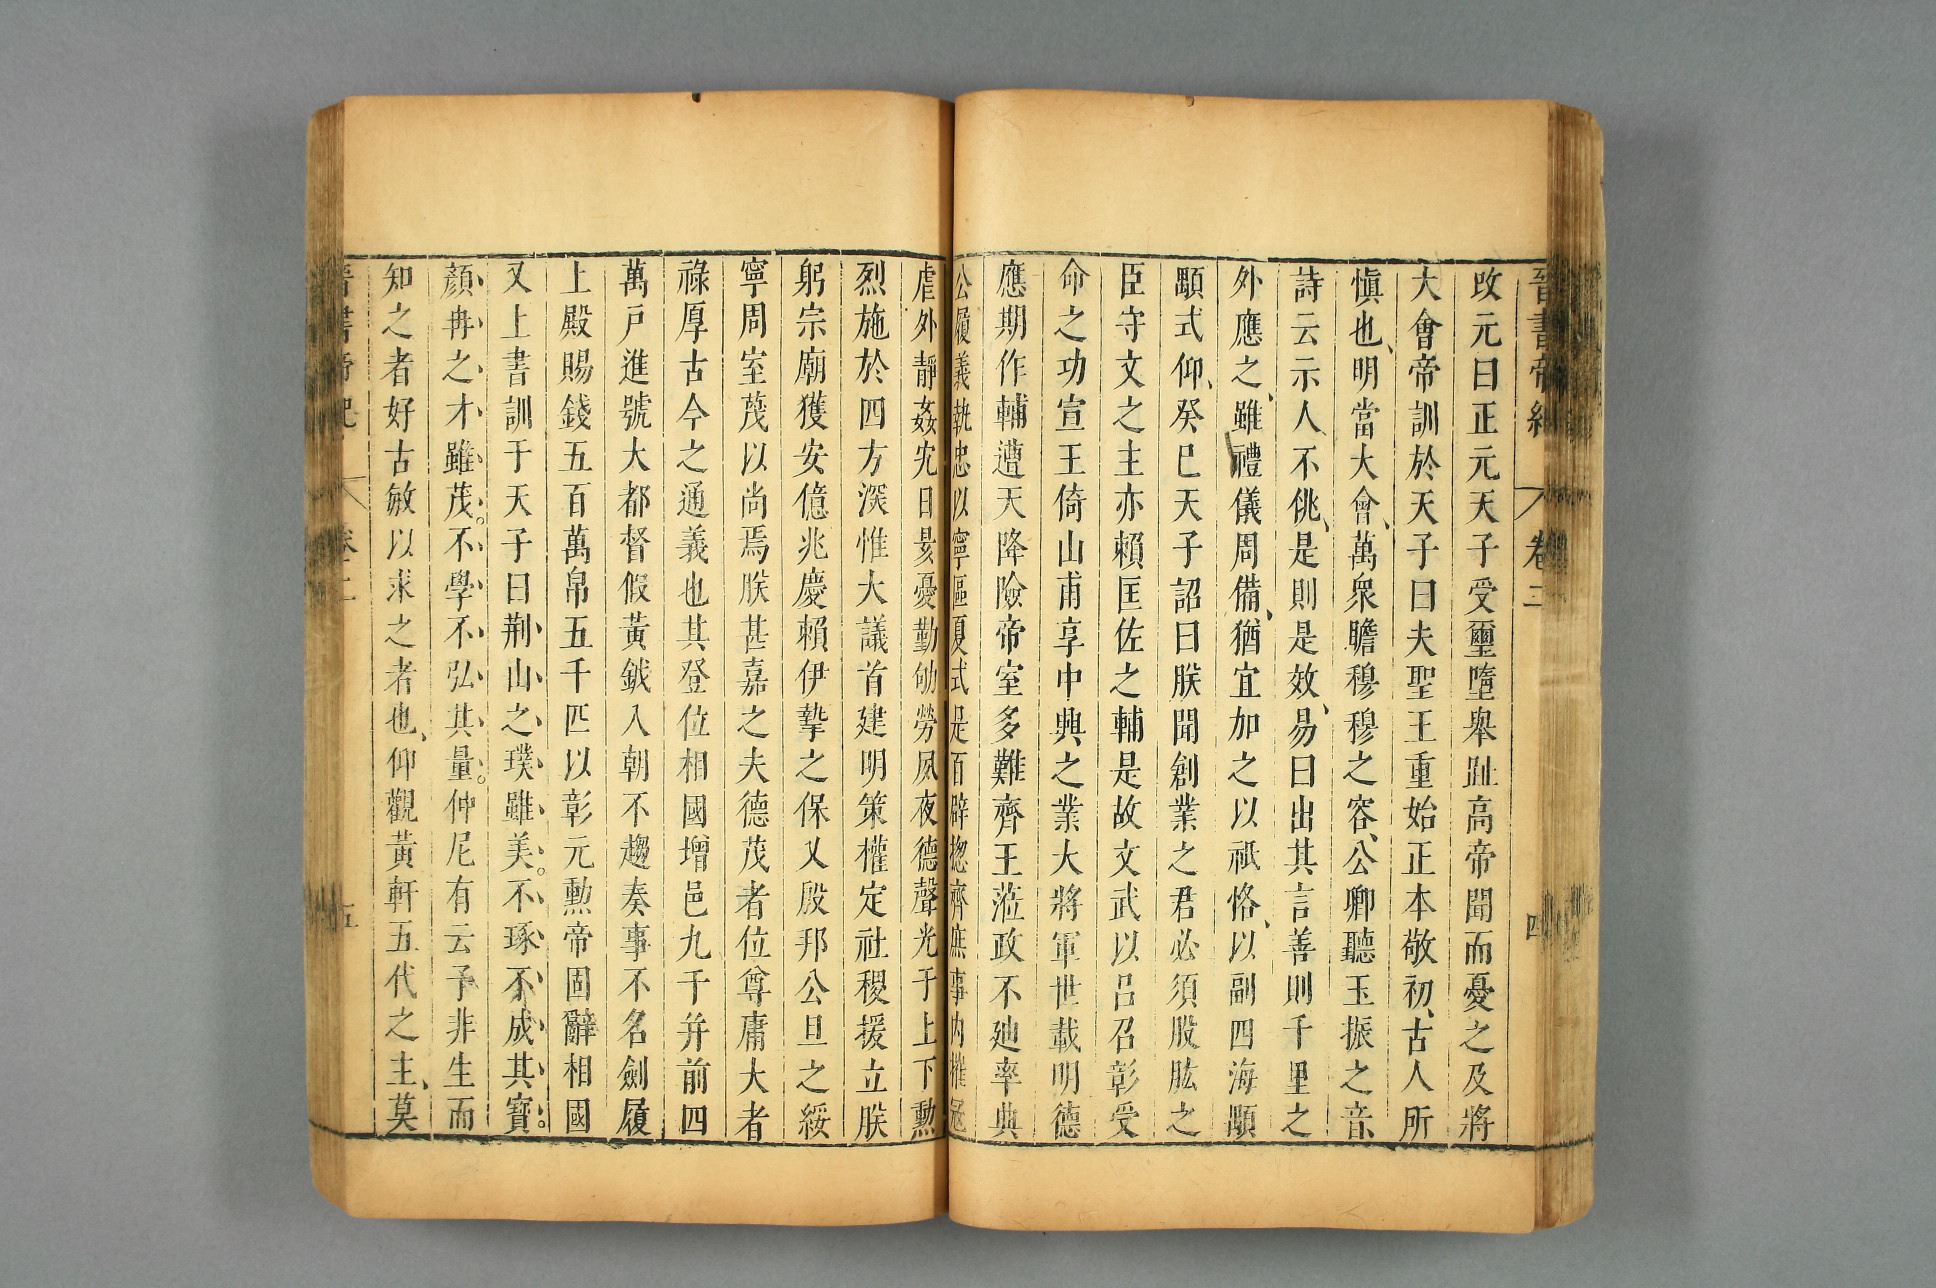 晉書帝紀 卷二 四
改元曰正元天子受璽墮舉趾高帝聞而憂之及將
大會帝訓於天子曰夫聖王重始正本敬初古人所
愼也明當大會萬衆瞻穆穆之容公卿聽玉振之音
詩云示人不佻是則是效易曰出其言善則千里之
外應之雖禮儀周備猶宜加之以祇恪以副四海顒
顒式仰癸巳天子詔曰朕聞創業之君必須股肱之
臣守文之主亦賴匡佐之輔是故文武以呂召彰受
命之功宣王倚山甫享中興之業大將軍世載明德
應期作輔遭天降險帝室多難齊王蒞政不廸率典
公履義執忠以寧區夏式是百辟揔齊庶事內摧寇
虐外靜姦宄日昃憂勤劬勞夙夜德聲光于上下勲
烈施於四方深惟大議首建明策權定社稷援立朕
躬宗廟獲安億兆慶賴伊摯之保乂殷邦公旦之綏
寧周室蔑以尚焉朕甚嘉之夫德茂者位尊庸大者
祿厚古今之通義也其登位相國增邑九千并前四
萬戸進號大都督假黃鉞入朝不趨奏事不名劍履
上殿賜錢五百萬帛五千匹以彰元勲帝固辭相國
又上書訓于天子曰荆山之璞雖美不琢不成其寶
顏冉之才雖茂不學不弘其量仲尼有云予非生而
知之者好古敏以求之者也仰觀黃軒五代之主莫
晉書帝紀 卷二 五